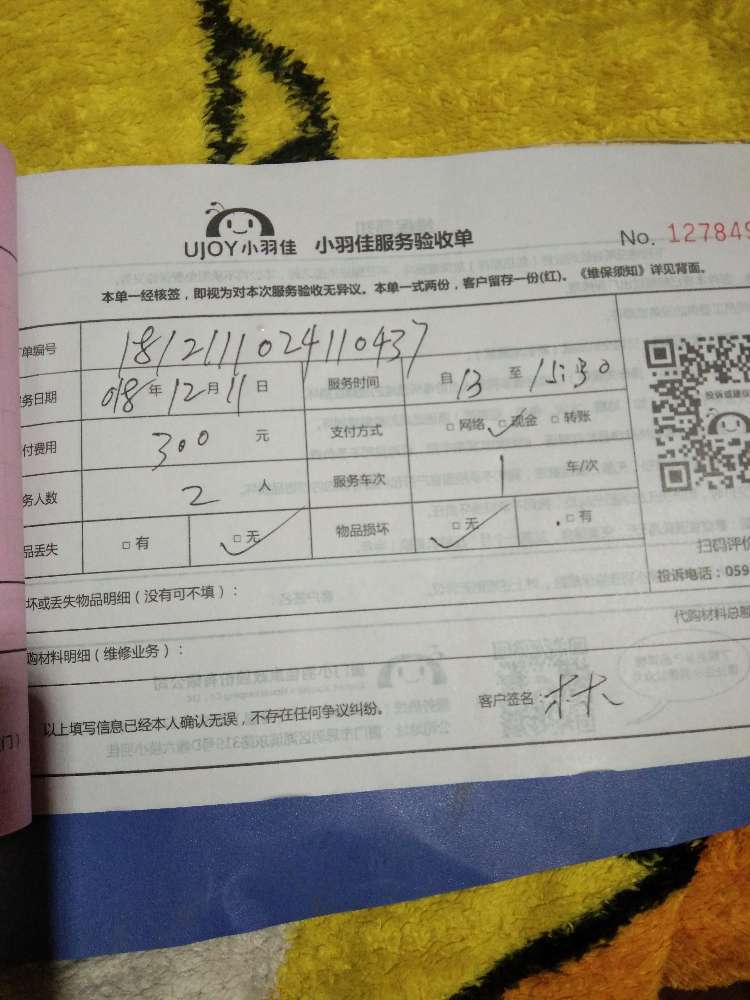 UJOY小羽佳 小羽佳服务验收单 No. 127849
本单一经核签，即视为对本次服务验收无异议。本单一式两份，客户留存一份(红)。《维保须知》详见背面。
单编号 1812111024110437
务日期 018年12月11日 服务时间 自13至15:30
付费用 300元 支付方式 □网络 ✓现金 □转账
务人数 2人 服务车次 1车/次
品丢失 □有 □无 物品损坏 □无 □有
投诉或建议
扫码评价
投诉电话：059
坏或丢失物品明细（没有可不填）：
代购材料总
购材料明细（维修业务）：
以上填写信息已经本人确认无误，不存在任何争议纠纷。 客户签名：林
门）